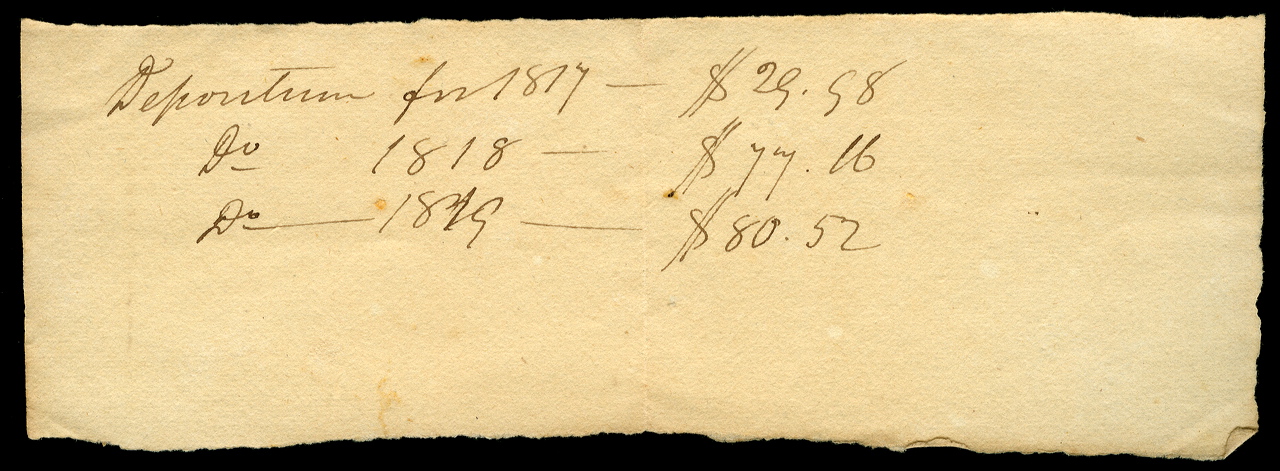 Depositum for 1817 — $29.98
Do 1818 — $77.16
Do — 1819 — $80.52